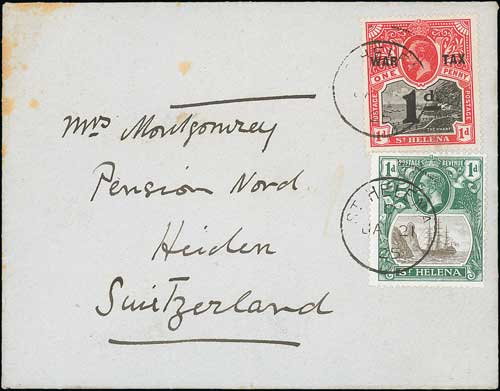 WAR TAX
ONE PENNY
POSTAGE POSTAGE
1d
THE WHARF
1d 1d
ST HELENA
Mrs Montgomrey
Pension Nord
Heiden
Switzerland
1d POSTAGE REVENUE 1d
ST HELENA
ST HELENA
JA 21